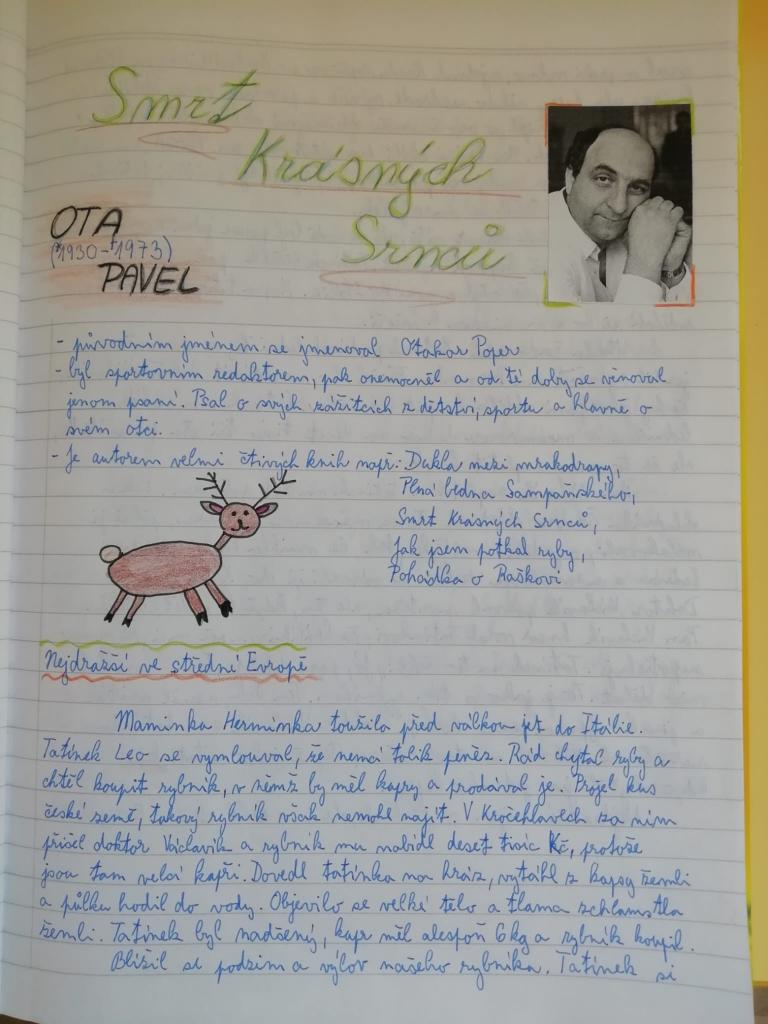 Smrt
Krásných
Srnců
OTA
(*1930-†1973)
PAVEL
- původním jménem se jmenoval Otakar Poper
- byl sportovním redaktorem, pak onemocněl a od té doby se věnoval
jenom psaní. Psal o svých zážitcích z dětství, sportu a hlavně o
svém otci.
- Je autorem velmi čtivých knih např.: Dukla mezi mrakodrapy,
Plná bedna Šampaňského,
Smrt Krásných Srnců,
Jak jsem potkal ryby,
Pohádka o Raškovi
Nejdražší ve střední Evropě
Maminka Herminka toužila před válkou jet do Itálie.
Tatínek Leo se vymlouval, že nemá tolik peněz. Rád chytal ryby a
chtěl koupit rybník, v němž by měl kapry a prodával je. Projel kus
české země, takový rybník však nemohl najít. V Kročehlavech za ním
přišel doktor Václavík a rybník mu nabídl deset tisíc Kč, protože
jsou tam velcí kapři. Dovedl tatínka na hráz, vytáhl z kapsy žemli
a půlku hodil do vody. Objevilo se velké tělo a tlama zchlamstla
žemli. Tatínek byl nadšený, kapr měl alespoň 6 kg a rybník koupil.
Blížil se podzim a výlov našeho rybníka. Tatínek si